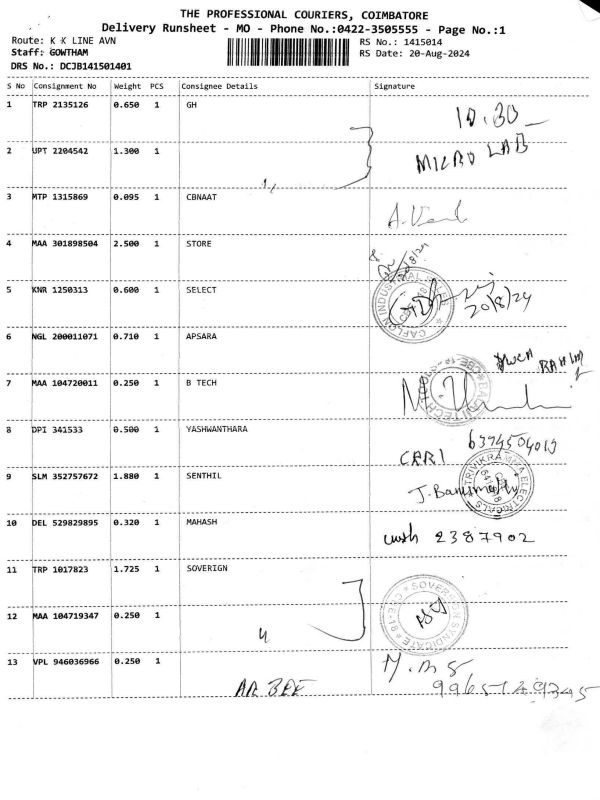 THE PROFESSIONAL COURIERS, COIMBATORE
Delivery Runsheet - MO - Phone No.:0422-3505555 - Page No.:1
Route: K K LINE AVN
RS No.: 1415014
Staff: GOWTHAM
RS Date: 20-Aug-2024
DRS No.: DCJB141501401
S No Consignment No Weight PCS Consignee Details Signature
1 TRP 2135126 0.650 1 GH
10.30
2 UPT 2204542 1.300 1
MICRO LAB
3 MTP 1315869 0.095 1 CBNAAT
4 MAA 301898504 2.500 1 STORE
20/8/24
5 KNR 1250313 0.600 1 SELECT
20/8/24
6 NGL 200011071 0.710 1 APSARA
7 MAA 104720011 0.250 1 B TECH
8 DPI 341533 0.500 1 YASHWANTHARA
CARI 6374504019
9 SLM 352757672 1.880 1 SENTHIL
TRIVIKRAMMA ELECTRICALS
10 DEL 529829895 0.320 1 MAHASH
2387902
11 TRP 1017823 1.725 1 SOVERIGN
SOVERIGN SYNDICATE
12 MAA 104719347 0.250 1
13 VPL 946036966 0.250 1